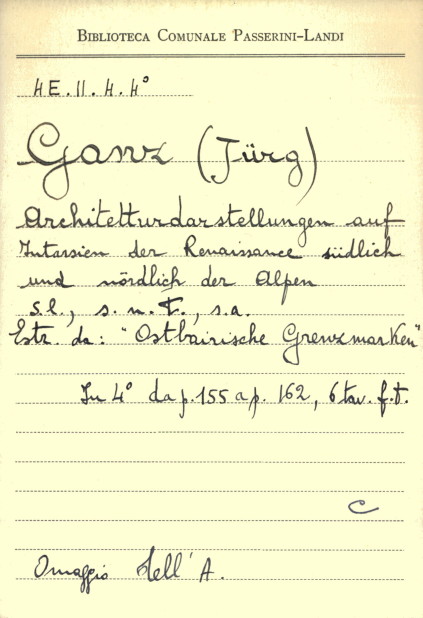 BIBLIOTECA COMUNALE PASSERINI-LANDI
4E.II.4.4°
Ganz (Jürg)
Architetturdarstellungen auf
Intarsien der Renaissance südlich
und nördlich der Alpen
s.l., s.n.t., s.a.
Estr. da: "Ostbairische Grenzmarken"
In 4° da p.155 a p. 162, 6 tav. f.t.
C
Omaggio dell'A.